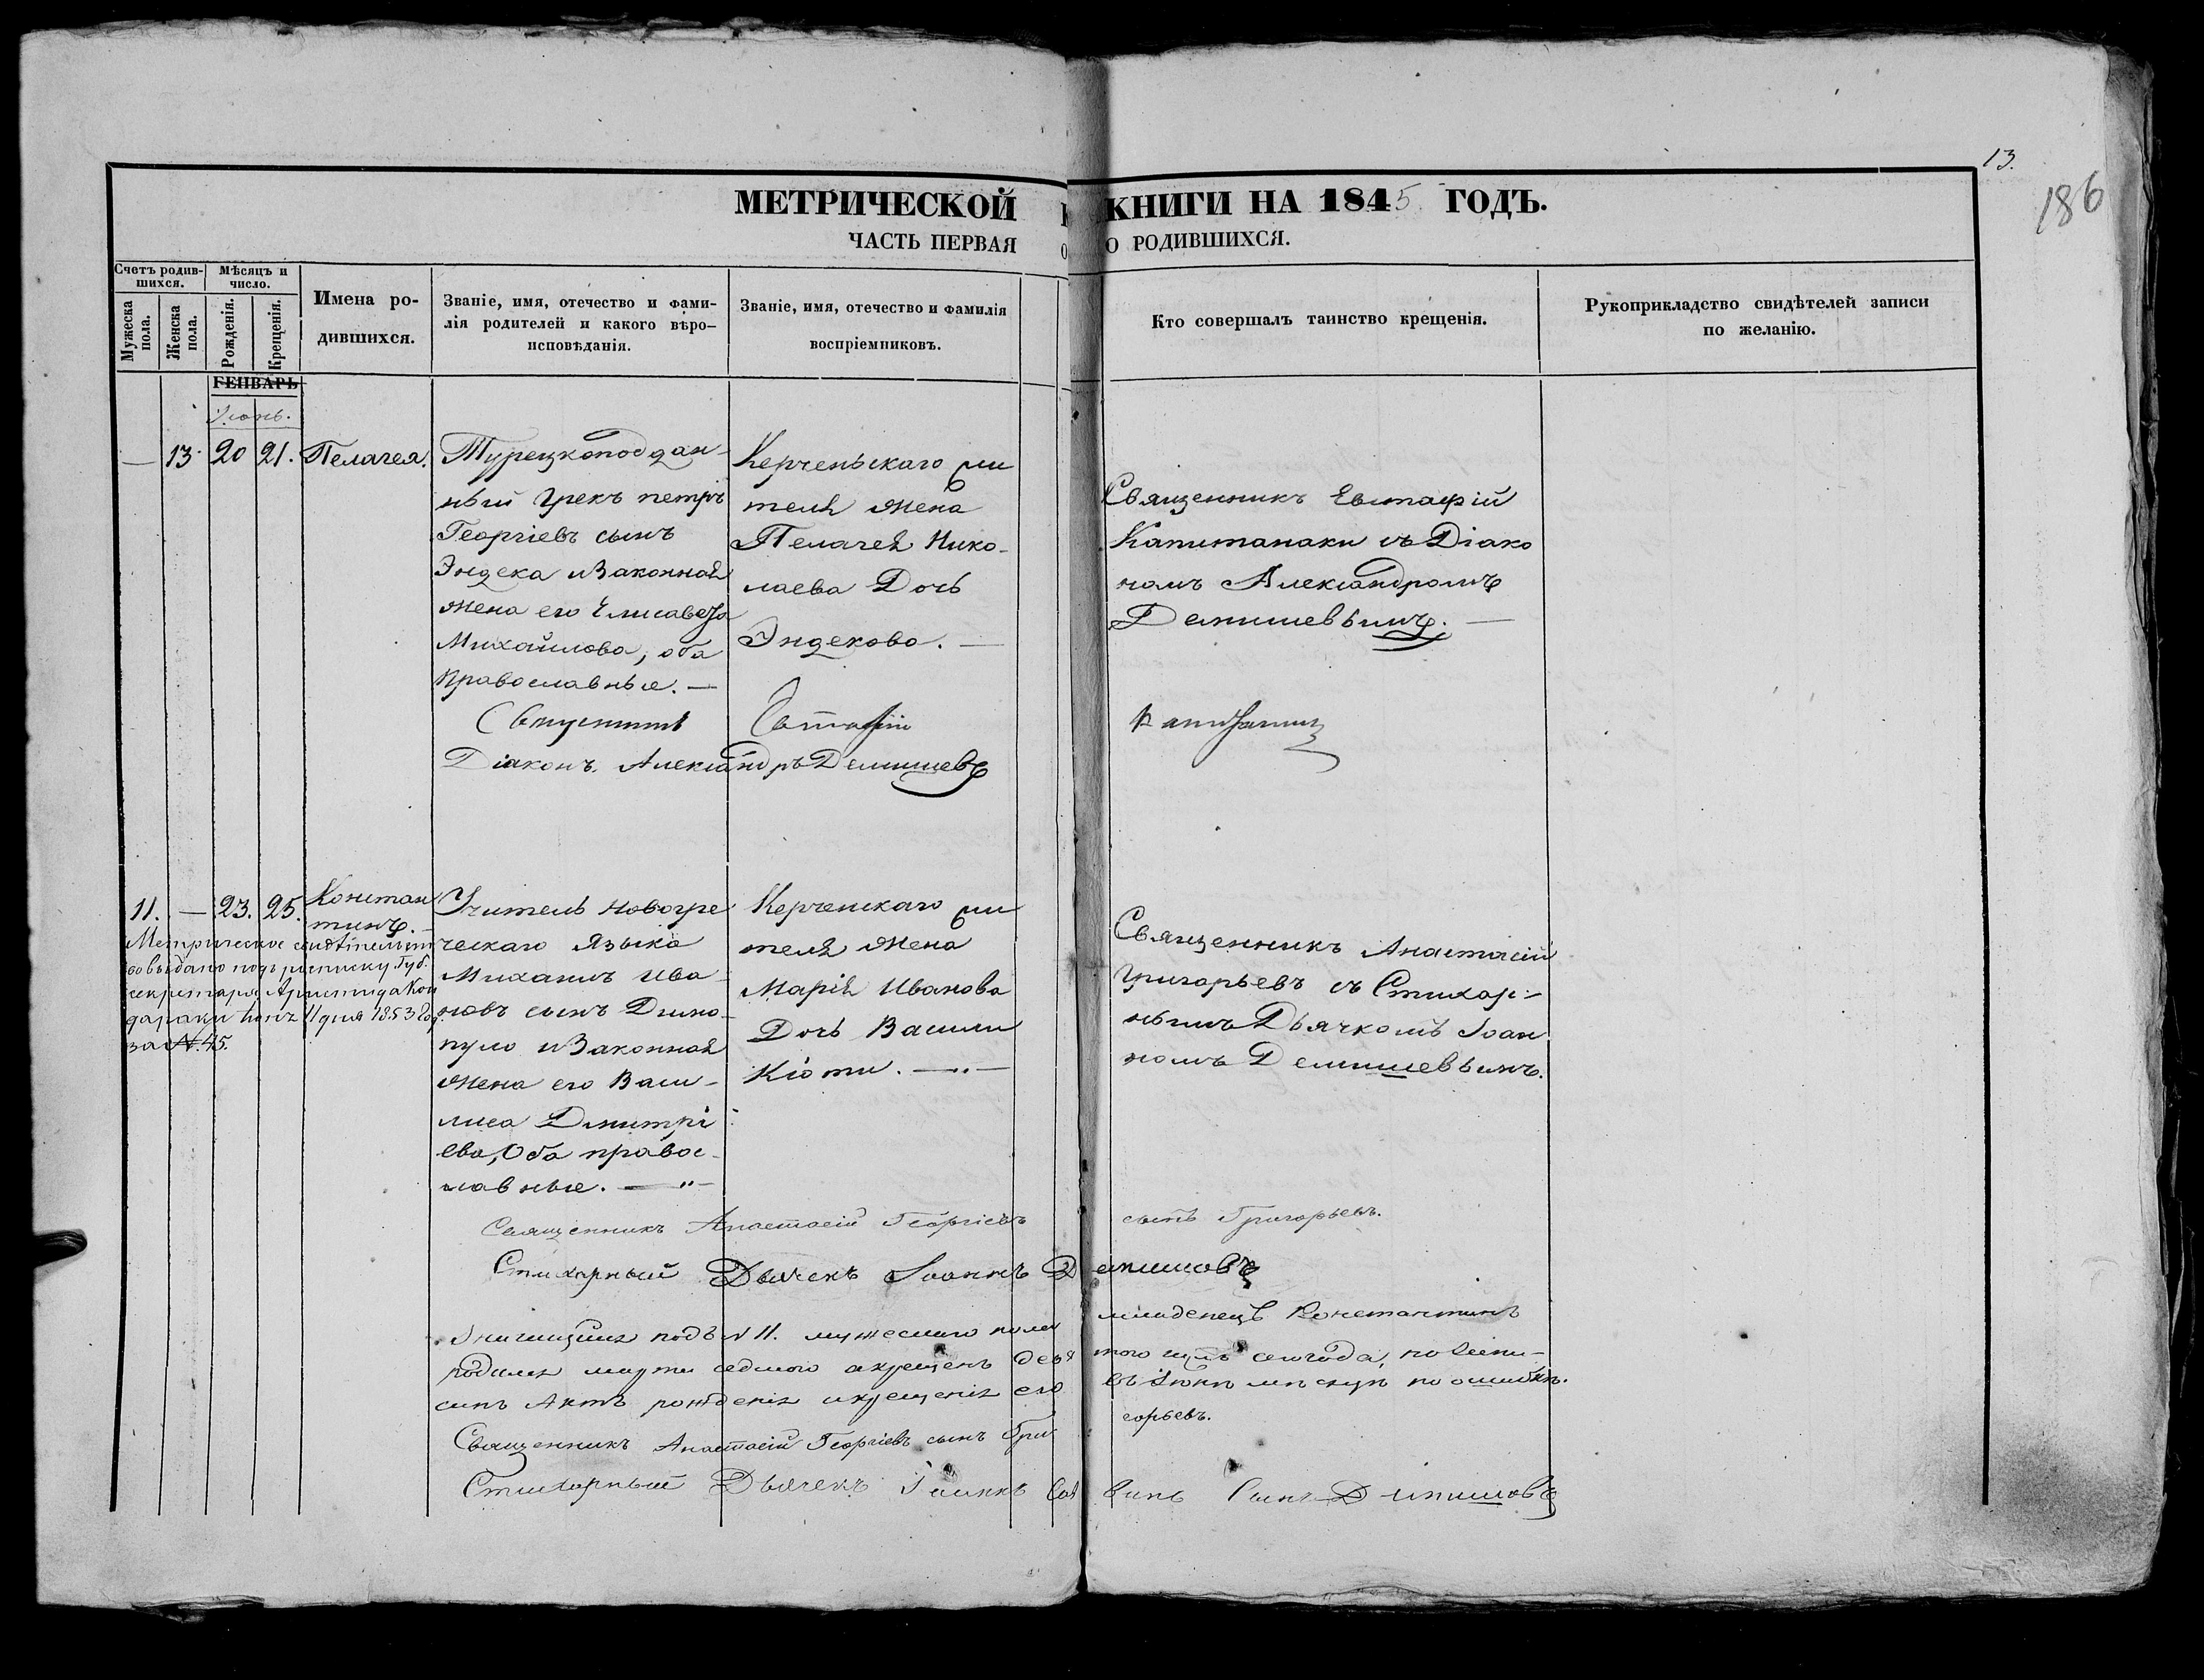 13.
186
МЕТРИЧЕСКОЙ КНИГИ НА 1845 ГОДЪ.
ЧАСТЬ ПЕРВАЯ О РОДИВШИХСЯ.
Счетъ родив-
шихся.
Мужеска
пола.
Женска
пола.
Мѣсяцъ и
число.
Рожденія.
Крещенія.
Имена ро-
дившихся.
Званіе, имя, отечество и фами-
лія родителей и какого вѣро-
исповѣданія.
Званіе, имя, отечество и фамилія
воспріемниковъ.
Кто совершалъ таинство крещенія.
Рукоприкладство свидѣтелей записи
по желанію.
ГЕНВАРЬ
Іюнь.
— 13. 20 21. Пелагея.
Турецкоподдан-
ный Грекъ петръ
Георгіевъ сынъ
Эндека и Законная
жена его Елисавета
Михайлова, оба
православные. —
Керченьскаго жи
теля жена
Пелагея Нико-
лаева Дочь
Эндеково. —
Священникъ Евстафій
Капитанаки съ Діако
номъ Александромъ
Демишевымъ. —
Евстафій
Діаконъ Александръ Демишевъ
11. — 23. 25. Констан
тинъ. —
Метрическое свидѣтельст
во выдано подъ росписку Губ.
секретаря Аристида Кон
дараки 11 дня 1853 год
за №. 45.
Учитель новогре
ческаго Языка
Михаилъ Ива
новъ сынъ Димо-
пуло и Законная
жена его Васи-
лиса Дмитрі
ева, Оба правос-
лавные. —"—
Керченскаго жи
теля жена
Марія Иванова
Дочь Васили
Кіоти. —"—
Священникъ Анастасій
Григорьевъ съ Стихар-
нымъ Дьячкомъ Іоан
номъ Демишевымъ.
Священникъ Анастасій Георгіевъ сынъ Григорьевъ.
Стихарный Дьячекъ Іоаннъ Демишовъ
Значащійся подъ № 11. мужескаго пола младенецъ Константинъ
родился марта седмого а крещенъ девятого сего года, но
Актъ рожденія и крещенія его въ Іюнѣ мѣсяцѣ по ошибкѣ.
Священникъ Анастасій Георгіевъ сынъ Григорьевъ.
Стихарный Дьячекъ Іоаннъ Савинъ Сынъ Демишовъ